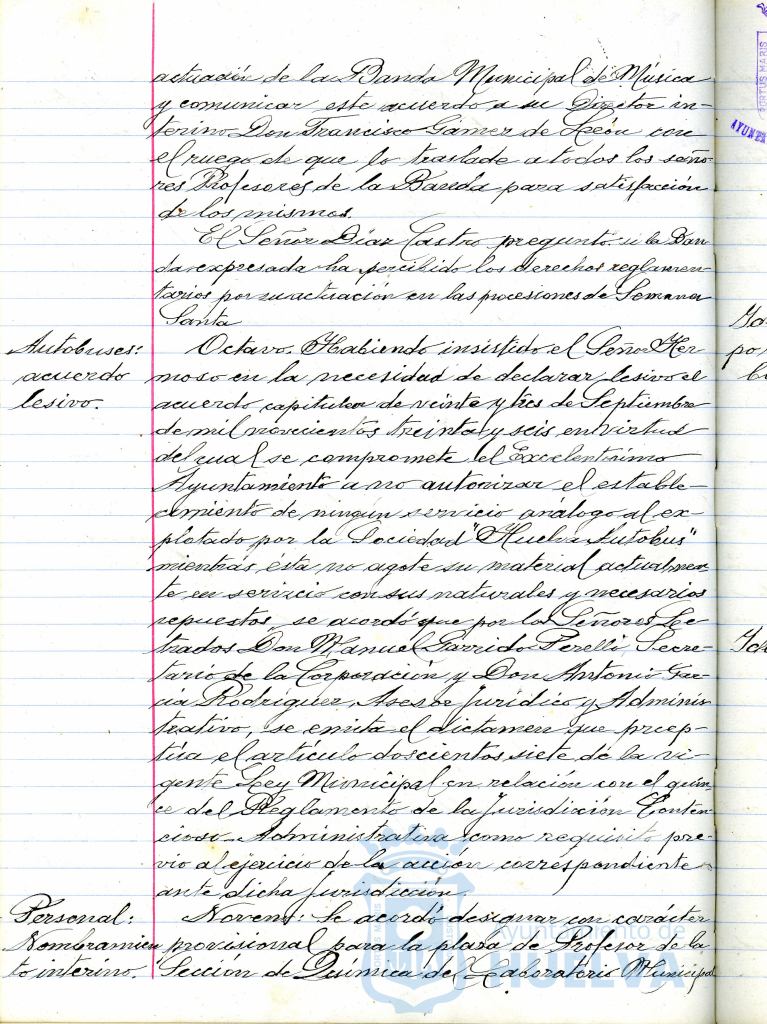 actuación de la Banda Municipal de Música
y comunicar este acuerdo a su Director in-
terino Don Francisco Gámez de León con
el ruego de que lo traslade a todos los seño-
res Profesores de la Banda para satisfacción
de los mismos.
El Señor Díaz Castro preguntó si la Ban-
da expresada ha percibido los derechos reglamen-
tarios por su actuación en las procesiones de Semana
Santa
Autobuses:
acuerdo
lesivo.
Octavo. Habiendo insistido el Señor Her-
moso en la necesidad de declarar lesivo el
acuerdo capitular de veinte y tres de Septiembre
de mil novecientos treinta y seis en virtud
del cual se compromete el Excelentísimo
Ayuntamiento a no autorizar el estable-
cimiento de ningún servicio análogo al ex-
plotado por la Sociedad "Huelva Autobus"
mientras ésta no agote su material actualmen-
te en servicio con sus naturales y necesarios
repuestos, se acordó que por los Señores Le-
trados Don Manuel Garrido Perelló, Secre-
tario de la Corporación y Don Antonio Gar-
cía Rodríguez, Asesor Jurídico y Adminis-
trativo, se emita el dictamen que precep-
túa el artículo doscientos siete de la vi-
gente Ley Municipal en relación con el quin-
ce del Reglamento de la Jurisdicción Conten-
cioso-Administrativa como requisito pre-
vio al ejercicio de la acción correspondiente
ante dicha Jurisdicción.
Personal:
Nombramien
to interino.
Noveno: Se acordó designar con carácter
provisional para la plaza de Profesor de la
Sección de Química del Laboratorio Municipal
Ayuntamiento de
HUELVA
PORTUS MARIS